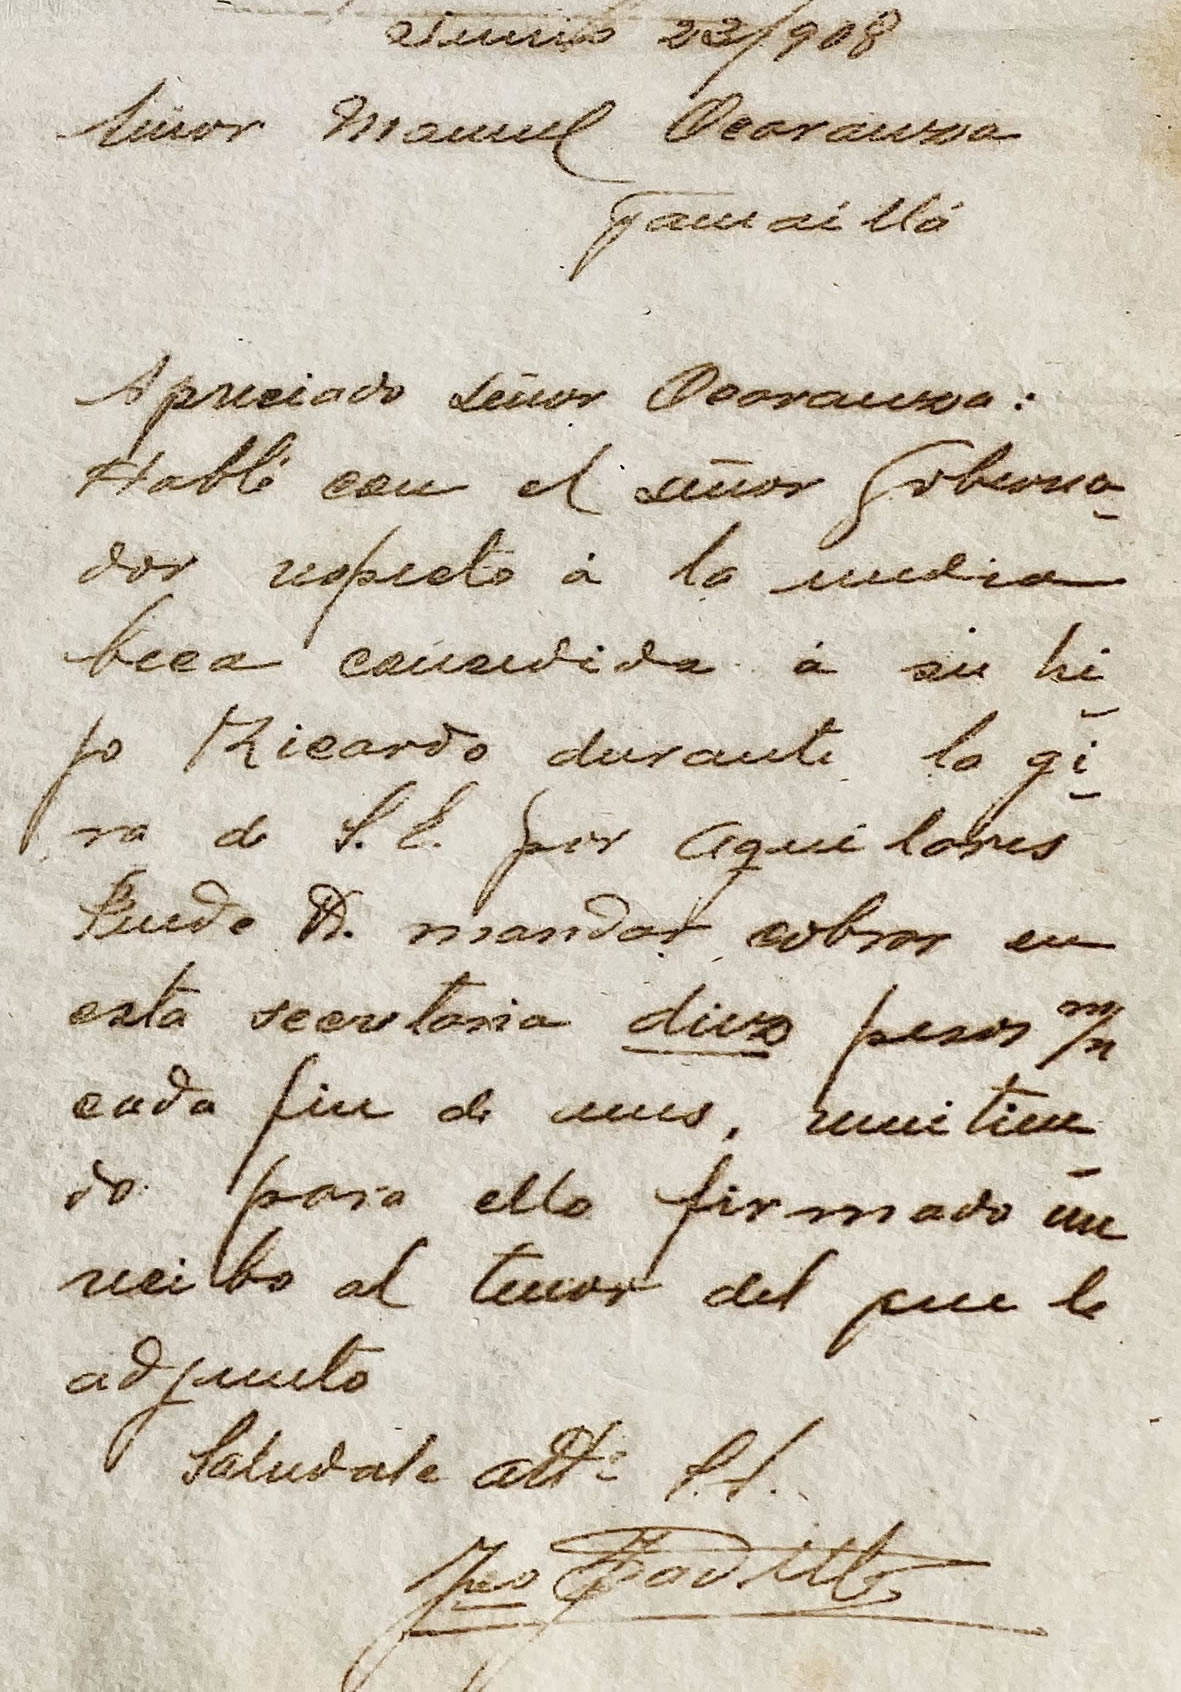 Junio 23/908
Señor Manuel Ocaranza
Famaillá
Apreciado señor Ocaranza:
Hablé con el señor Goberna-
dor respecto á la media
beca concedida á su hi-
jo Ricardo durante la gi-
ra de S. E. por Aguilares
Puede Ud. mandar cobrar en
esta secretaria diez pesos m/n
cada fin de mes, remitien-
do para ello firmado un
recibo al tenor del que le
adjunto
Saludale atte S.S.
Padilla